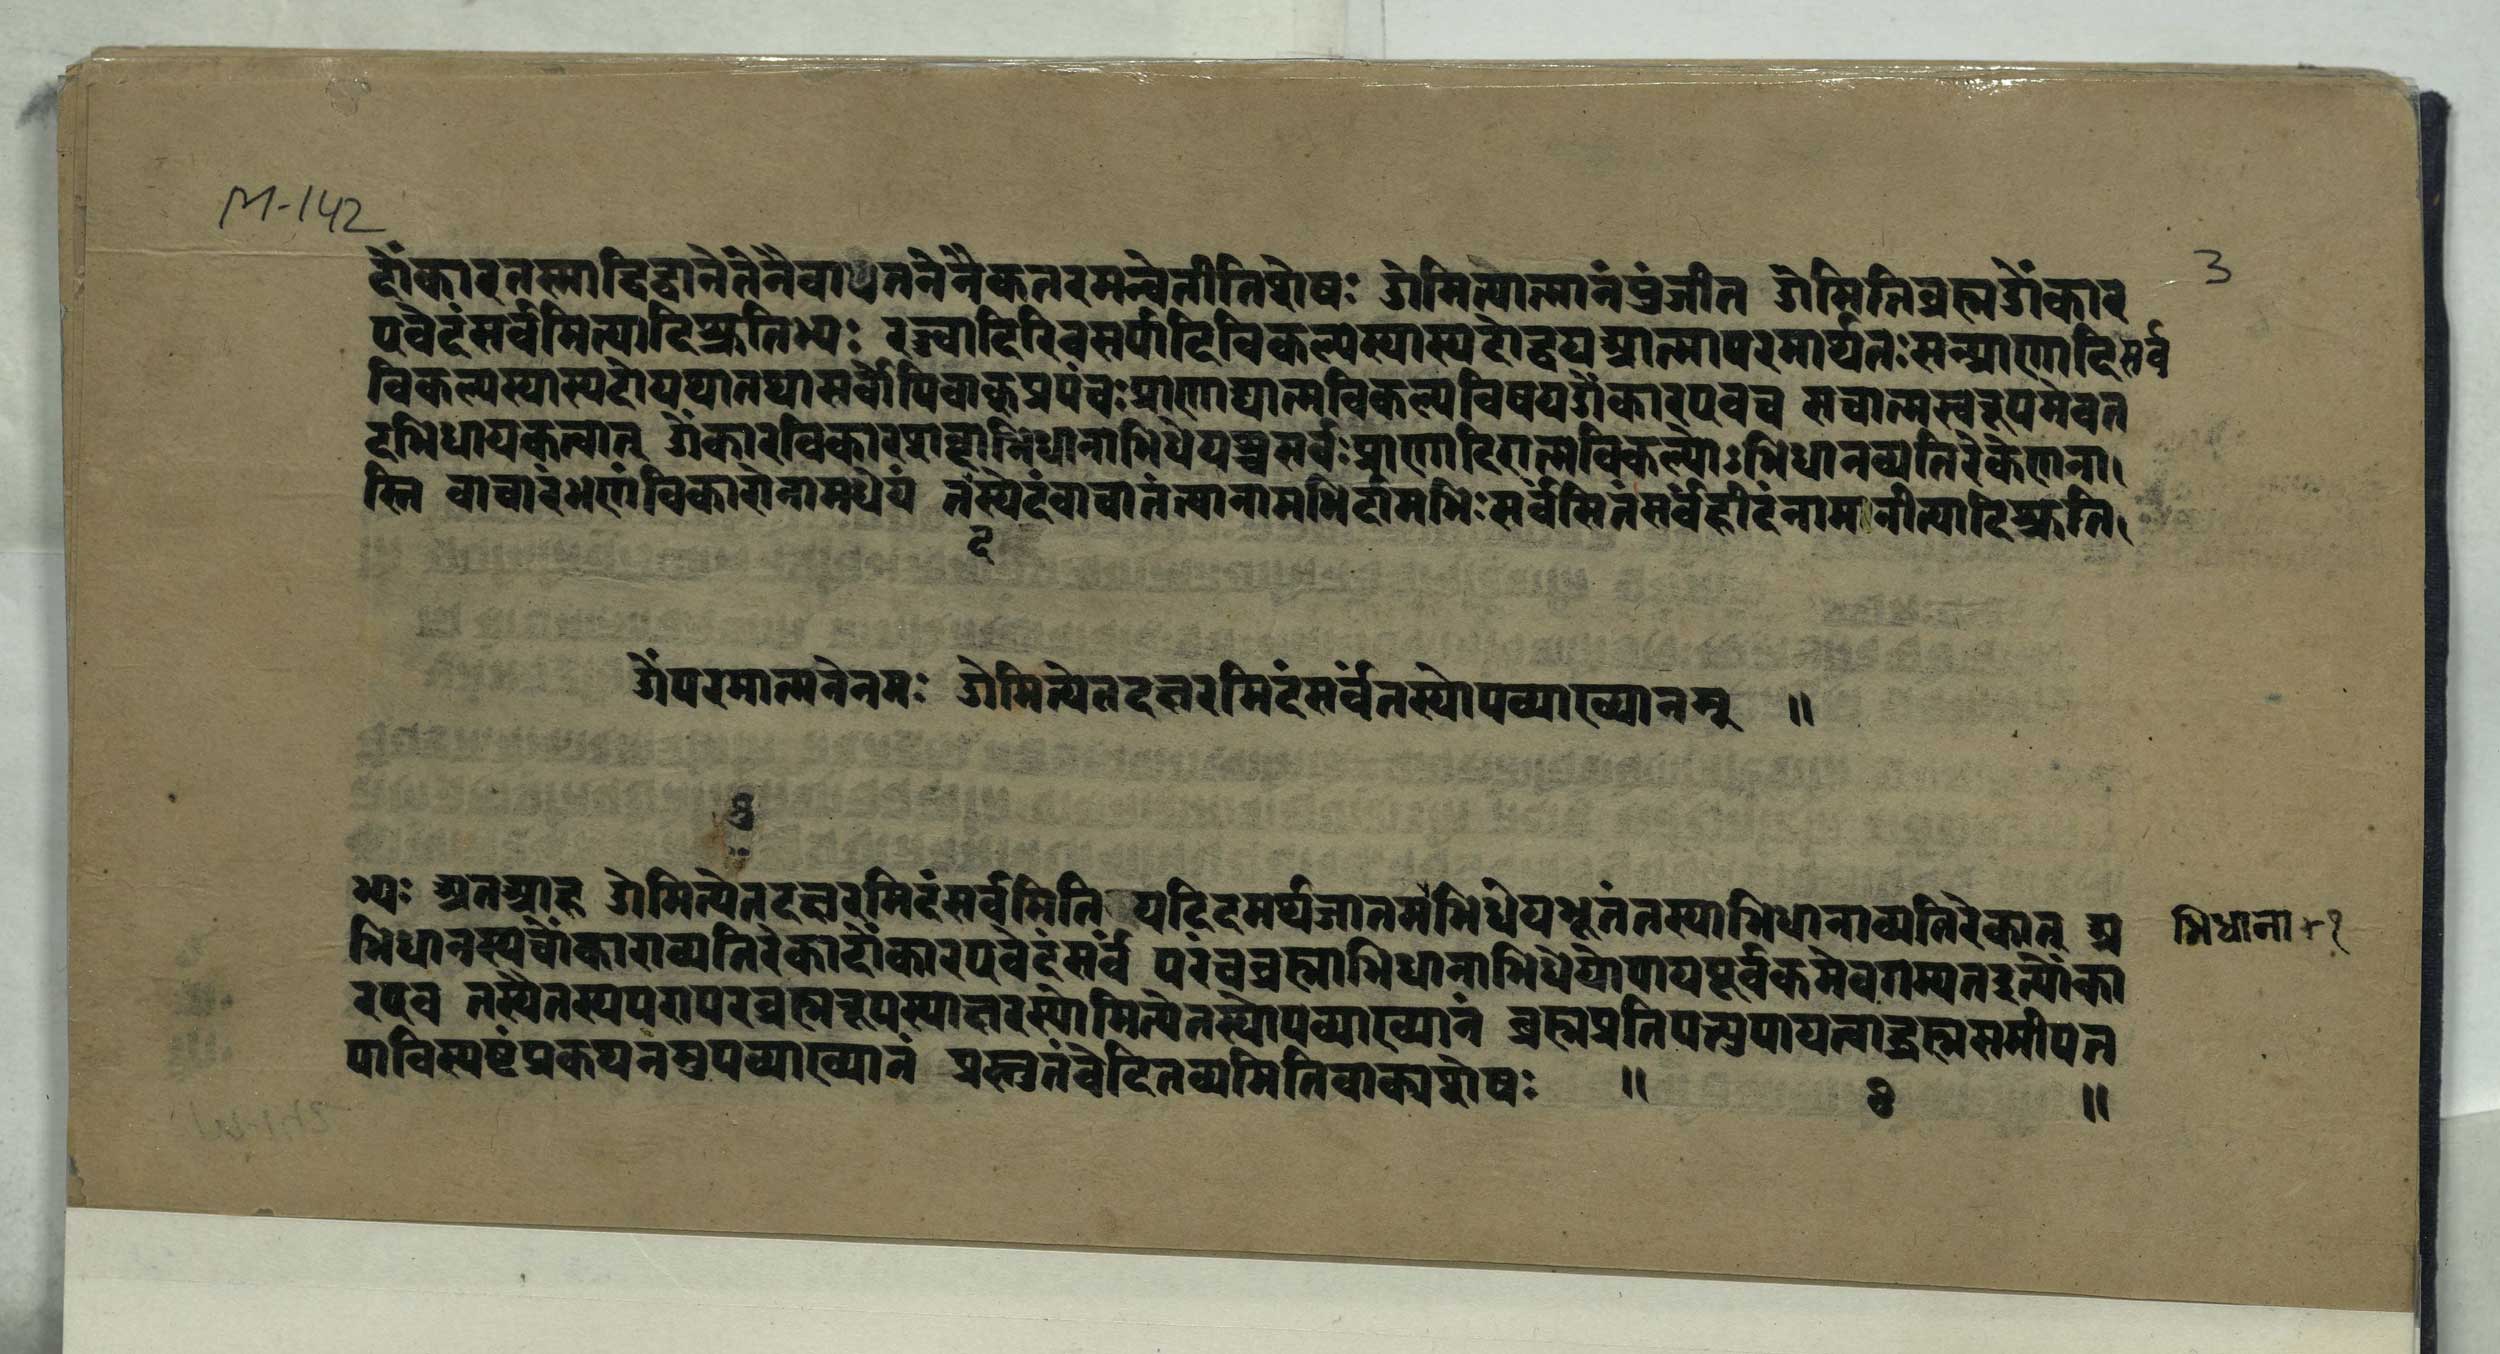 M-142
3
दोंकारतस्माद्विद्वानेतेनैवायतनेनैकतरमन्वेतीतिशेषः ॐमित्यात्मानंयुंजीत ॐमितिब्रह्मॐकार
एवेदंसर्वमित्यादिश्रुतिभ्यः रज्ज्वादिरिवसर्पादिविकल्पस्यास्पदोद्वयआत्मापरमार्थतःसन्प्राणादिसर्व
विकल्पस्यास्पदोयथातथासर्वोपिवाक्प्रपंचःप्राणाद्यात्मविकल्पविषयॐकारएवच सचात्मस्वरूपमेवत
दभिधायकत्वात् ॐकारविकारशब्दाभिधानाभिधेयश्चसर्वःप्राणादिरात्मविकल्पोऽभिधानव्यतिरेकेणना
स्ति वाचारंभणंविकारोनामधेयं तस्येदंवाचातंत्यानामभिर्दामभिःसर्वंसितंसर्वंहीदंनामानीत्यादिश्रुति
द
ॐपरमात्मनेनमः ॐमित्येतदक्षरमिदंसर्वंतस्योपव्याख्यानम् ॥
भ्यः अतआह ॐमित्येतदक्षरमिदंसर्वमिति यदिदमर्थजातमभिधेयभूतंतस्याभिधानाव्यतिरेकात् अ
भिधाना + १
भिधानस्यचोंकाराव्यतिरेकादोंकारएवेदंसर्वं परंचब्रह्माभिधानाभिधेयोपायपूर्वकमेवगम्यतइत्योंका
रएव तस्यैतस्यपरापरब्रह्मरूपस्याक्षरस्योमित्येतस्योपव्याख्यानं ब्रह्मप्रतिपत्त्युपायत्वाद्ब्रह्मसमीपत
याविस्पष्टंप्रकथनमुपव्याख्यानं प्रस्तुतंवेदितव्यमितिवाक्यशेषः ॥ ॥